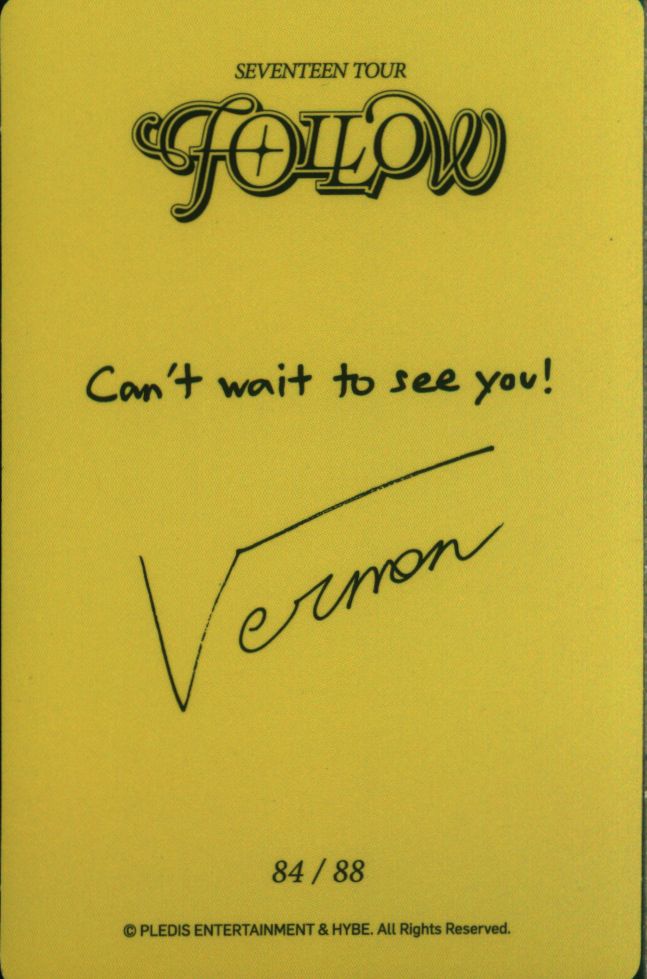 SEVENTEEN TOUR
FOLLOW
Can't wait to see you!
Vernon
84 / 88
© PLEDIS ENTERTAINMENT & HYBE. All Rights Reserved.